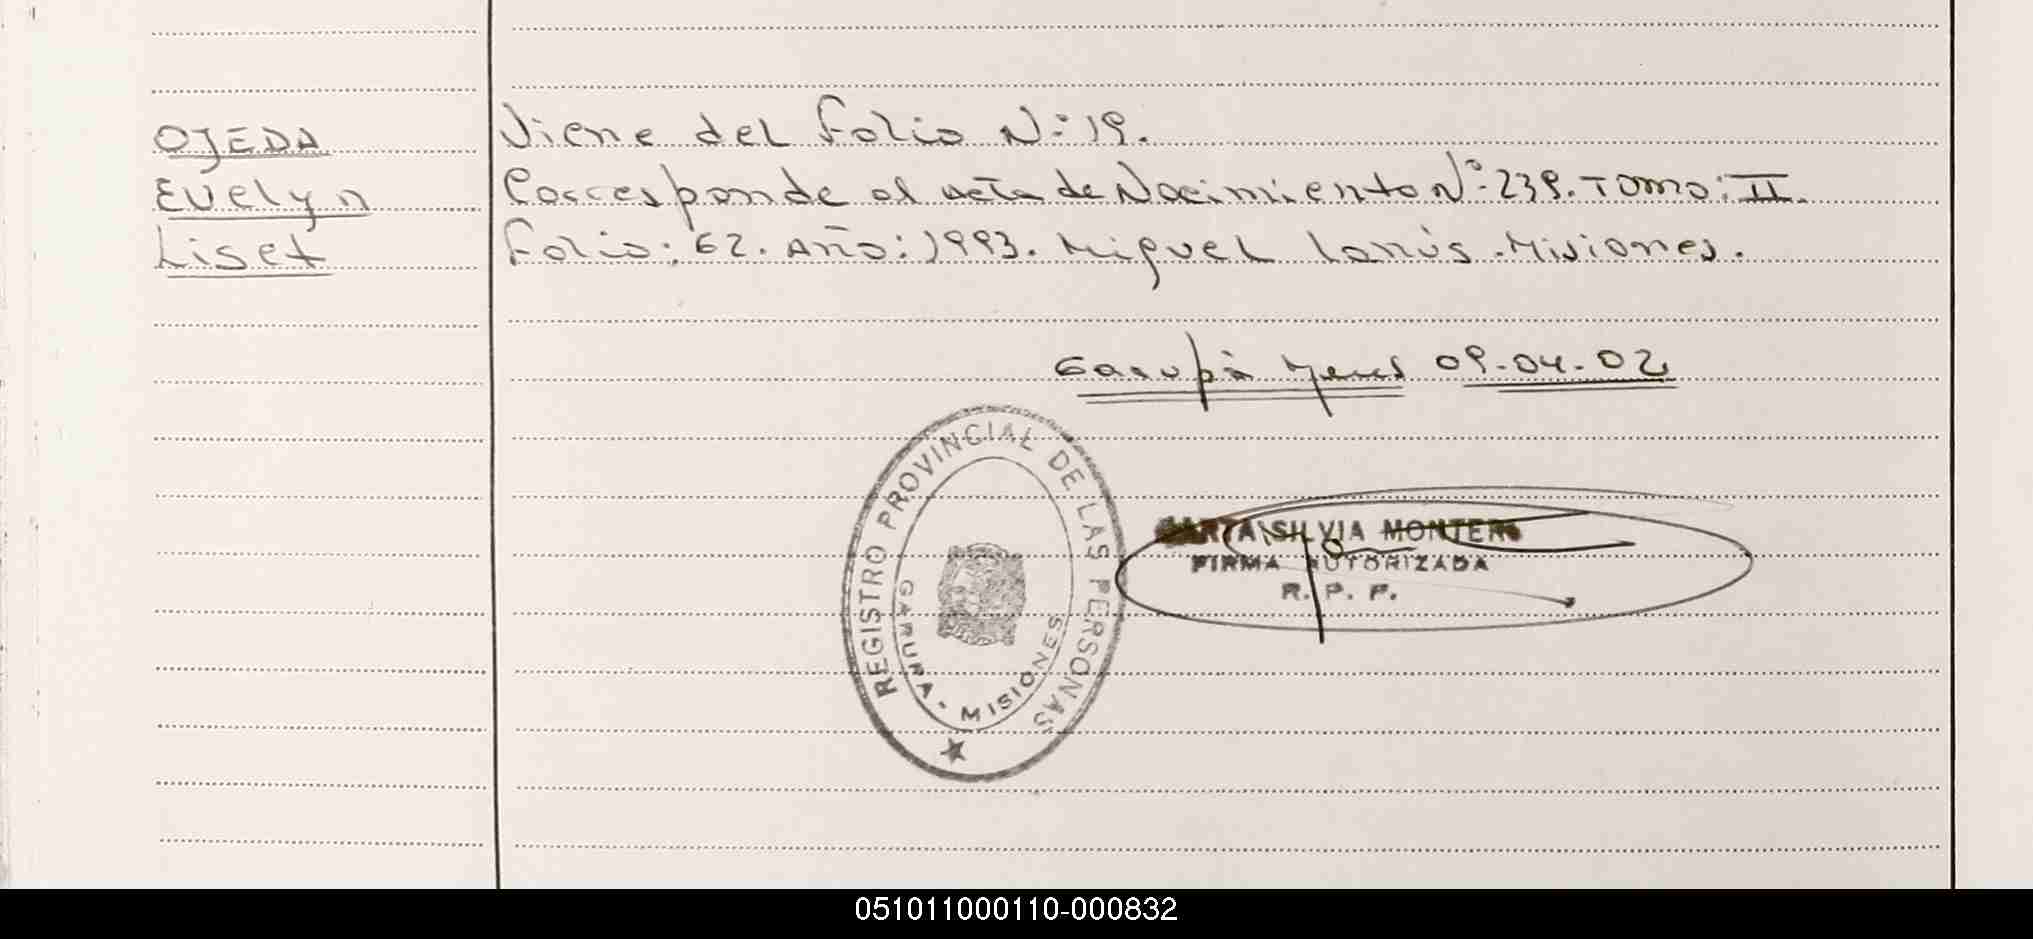 OJEDA
Evelyn
Liset
Viene del Folio N: 19.
Corresponde al acta de Nacimiento N°: 239. Tomo: II.
Folio: 62. Año: 1993. Miguel Lanús. Misiones.
Garupá Mnes 09-04-02
REGISTRO PROVINCIAL DE LAS PERSONAS
GARUPA - MISIONES
SILVIA MONTERO
FIRMA AUTORIZADA
R. P. P.
051011000110-000832